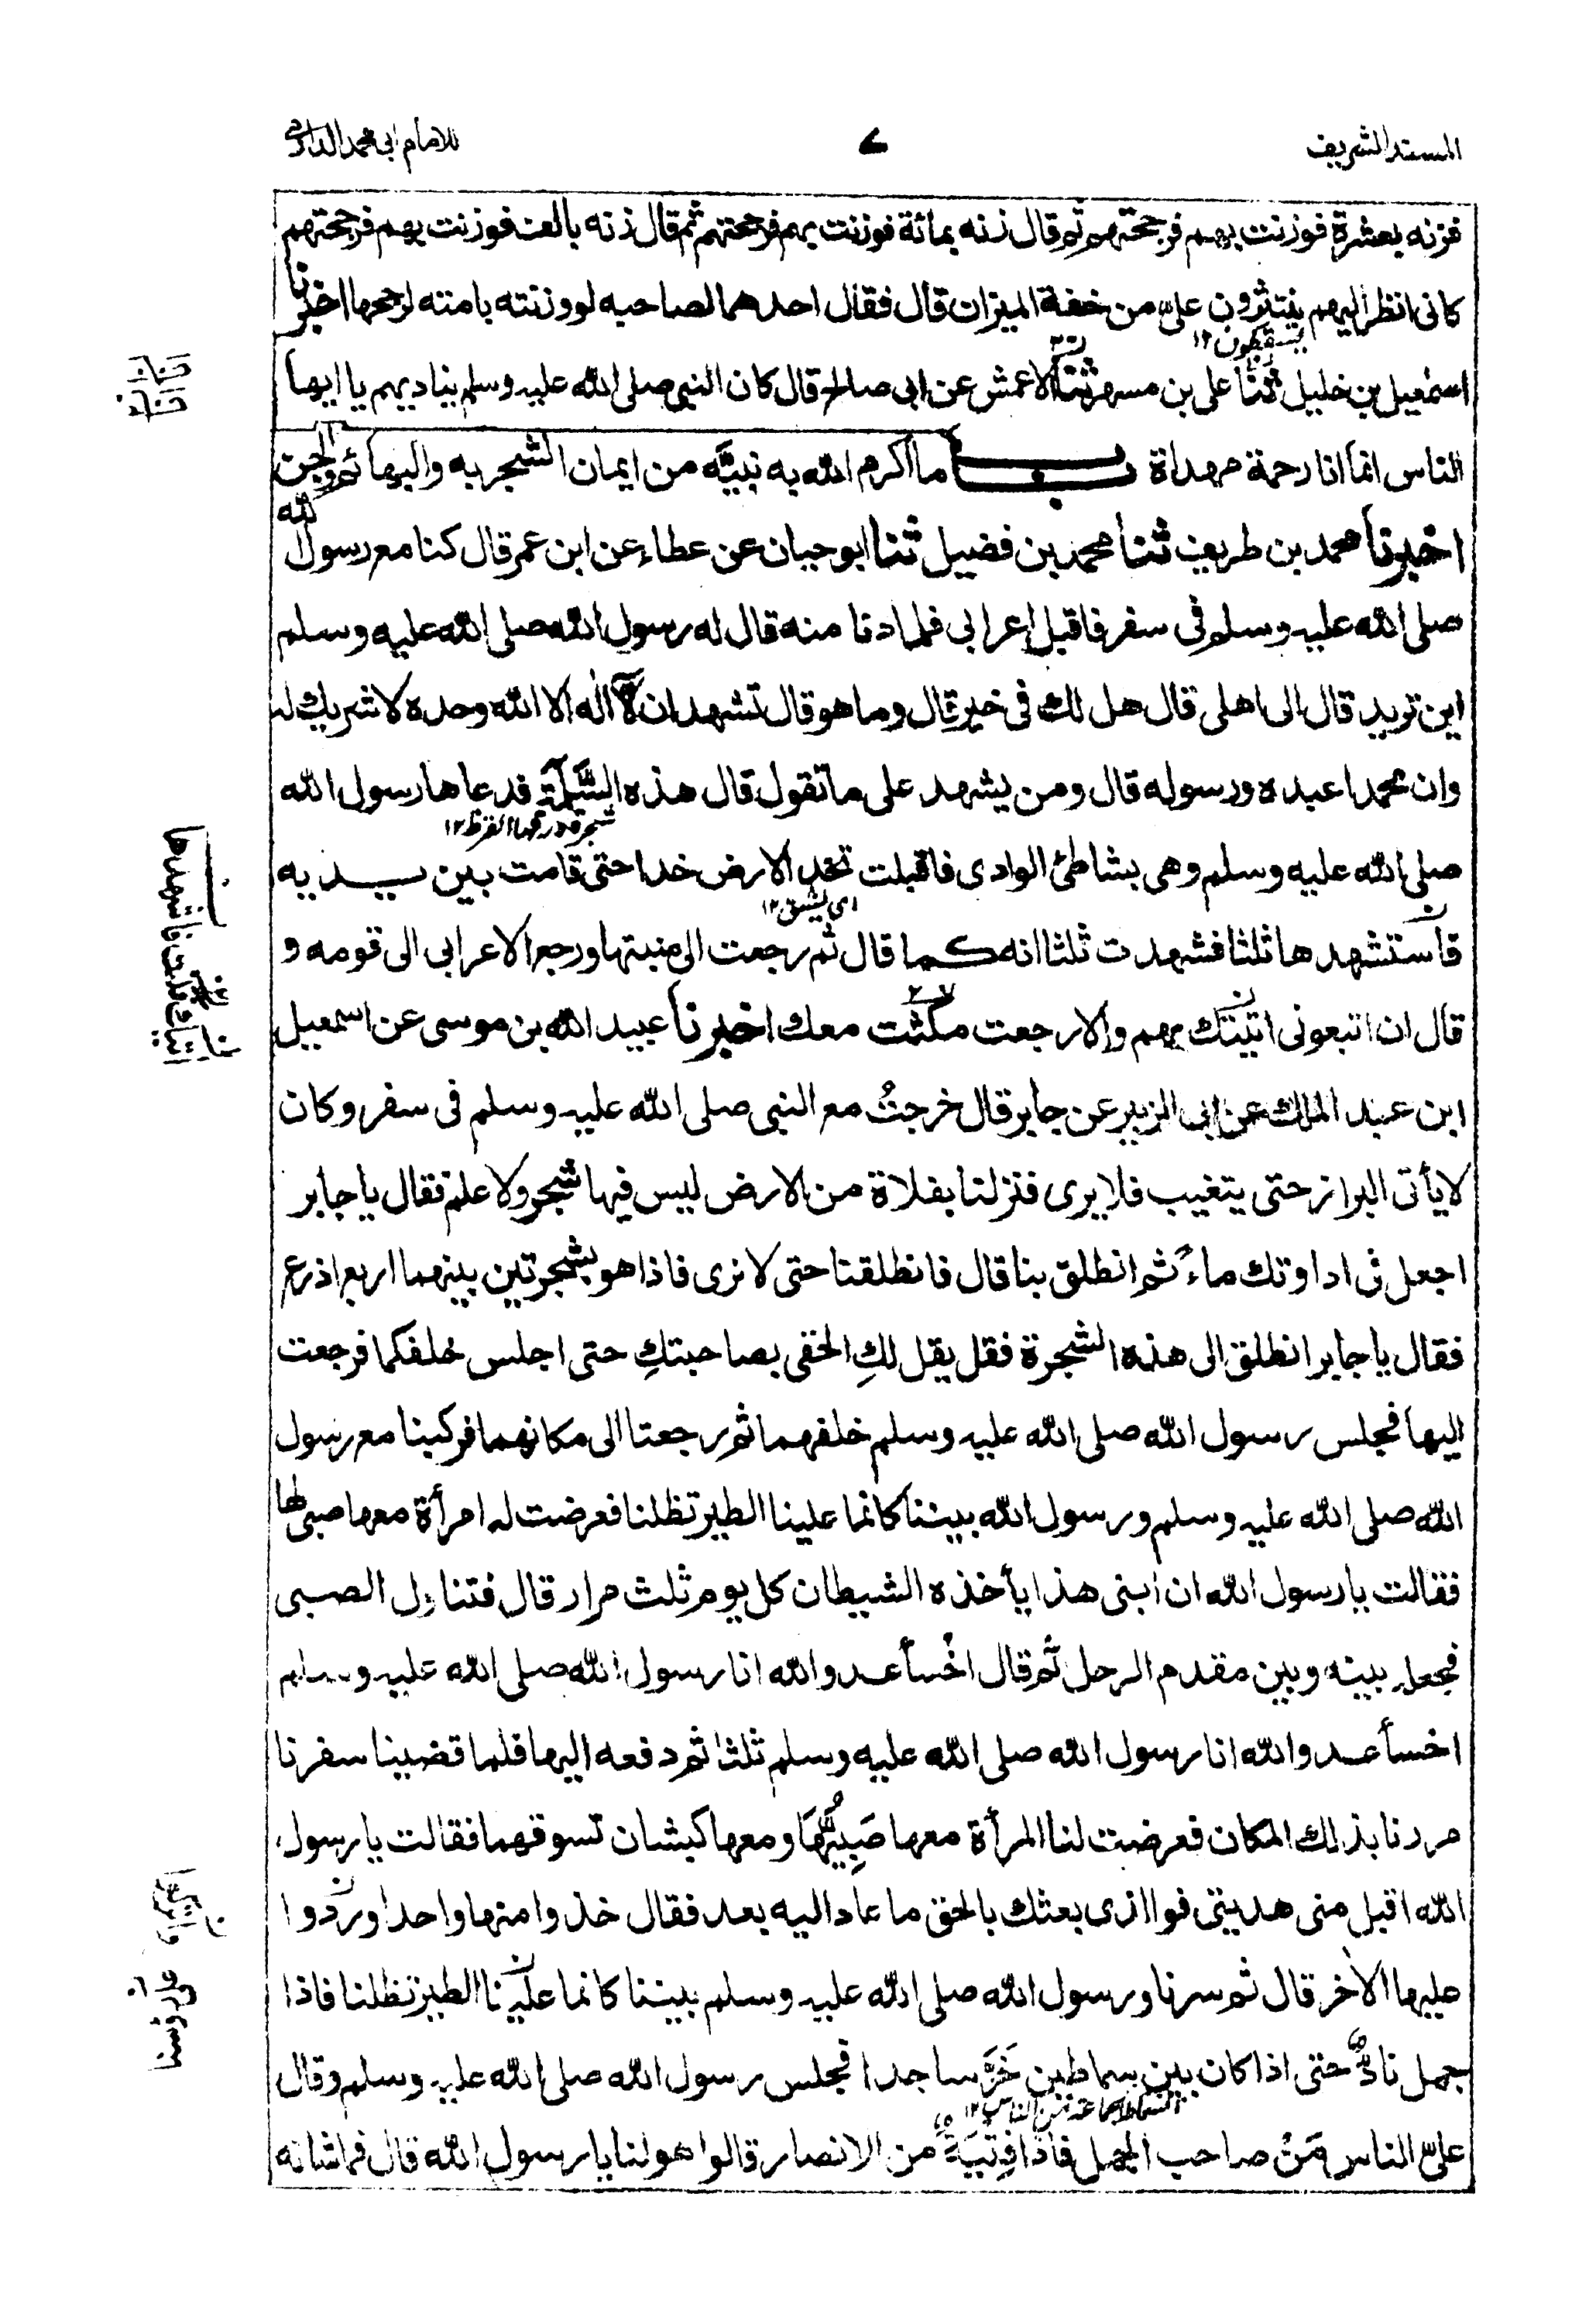 المسند الشريف
٧
للامام ابى محمد الدارمى
فزنه بعشرة فوزنت بهم فرجحتهم ثم قال زنه بمائة فوزنت بهم فرجحتهم ثم قال زنه بالف فوزنت بهم فرجحتهم
كانى انظر اليهم ينتثرون علىّ من خفة الميزان قال فقال احدهما لصاحبه لو وزنته بامته لرجحها اخبرنا
يسقطون ١٢
اسمٰعيل بن خليل ثنا على بن مسهر ثنا الاعمش عن ابى صالح قال كان النبى صلى الله عليه وسلم يناديهم يا ايها
الناس انما انا رحمة مهداة باب ما اكرم الله به نبيّه من ايمان الشجر به والبهائم والجن
اخبرنا محمد بن طريف ثنا محمد بن فضيل ثنا ابو حيان عن عطاء عن ابن عمر قال كنا مع رسول الله
صلى الله عليه وسلم فى سفر فاقبل اعرابى فلما دنا منه قال له رسول الله صلى الله عليه وسلم
اين تريد قال الى اهلى قال هل لك فى خير قال وما هو قال تشهد ان لآ اله الا الله وحده لا شريك له
وان محمدا عبده ورسوله قال ومن يشهد على ما تقول قال هذه السَّلَمَة فدعاها رسول الله
شجرة ورقها القرظ ١٢
صلى الله عليه وسلم وهى بشاطئ الوادى فاقبلت تخد الارض خدا حتى قامت بين يديه
اى يشق ١٢
فاستشهدها ثلثا فشهدت ثلثا انه كما قال ثم رجعت الى منبتها ورجع الاعرابى الى قومه و
قال ان اتبعونى اتيتك بهم والا رجعت مكثت معك اخبرنا عبيد الله بن موسى عن اسمعيل
ابن عبد الملك عن ابى الزبير عن جابر قال خرجتُ مع النبى صلى الله عليه وسلم فى سفر وكان
لا يأتى البراز حتى يتغيب فلا يرى فنزلنا بفلاة من الارض ليس فيها شجر ولا علم فقال يا جابر
اجعل فى اداوتك ماء ثم انطلق بنا قال فانطلقنا حتى لا نرى فاذا هو بشجرتين بينهما اربع اذرع
فقال يا جابر انطلق الى هذه الشجرة فقل يقل لكِ الحقى بصاحبتكِ حتى اجلس خلفكما فرجعت
اليها فجلس رسول الله صلى الله عليه وسلم خلفهما ثم رجعتا الى مكانهما فركبنا مع رسول
الله صلى الله عليه وسلم ورسول الله بيننا كانما علينا الطير تظلنا فعرضت له امرأة معها صبى لها
فقالت يا رسول الله ان ابنى هذا يأخذه الشيطان كل يوم ثلث مرار قال فتناول الصبى
فجعله بينه وبين مقدم الرحل ثم قال اخسأ عدو الله انا رسول الله صلى الله عليه وسلم
اخسأ عدو الله انا رسول الله صلى الله عليه وسلم ثلثا ثم دفعه اليها فلما قضينا سفرنا
مررنا بذلك المكان فعرضت لنا المرأة معها صَبِيُّهَا ومعها كبشان تسوقهما فقالت يا رسول
الله اقبل منى هديتى فوالذى بعثك بالحق ما عاد اليه بعد فقال خذوا منها واحدا وردوا
عليها الاخر قال ثم سرنا ورسول الله صلى الله عليه وسلم بيننا كانما علينا الطير تظلنا فاذا
جمل نادٌّ حتى اذا كان بين سماطين خَرَّ ساجدا فجلس رسول الله صلى الله عليه وسلم وقال
السماط جماعة من الناس ١٢
علىّ الناس مَنْ صاحب الجمل فاذا فِتْيَةٌ من الانصار قالوا هو لنا يا رسول الله قال فما شانه